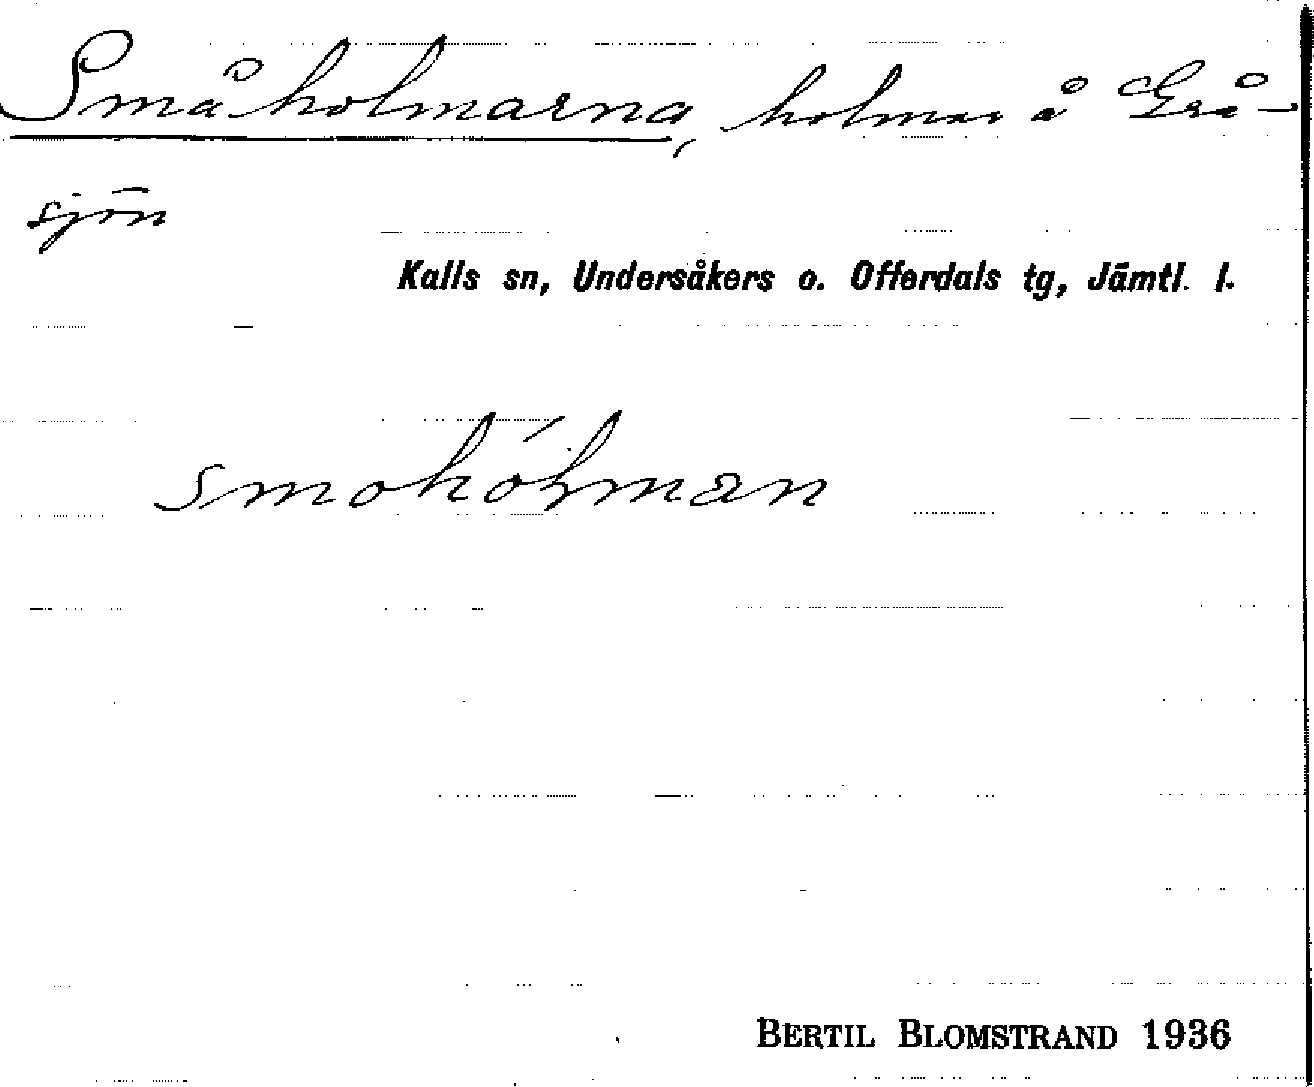 Småholmarna, holmar å Grå-
sjön
Kalls sn, Undersåkers o. Offerdals tg, Jämtl. l.
smohólman
BERTIL BLOMSTRAND 1936